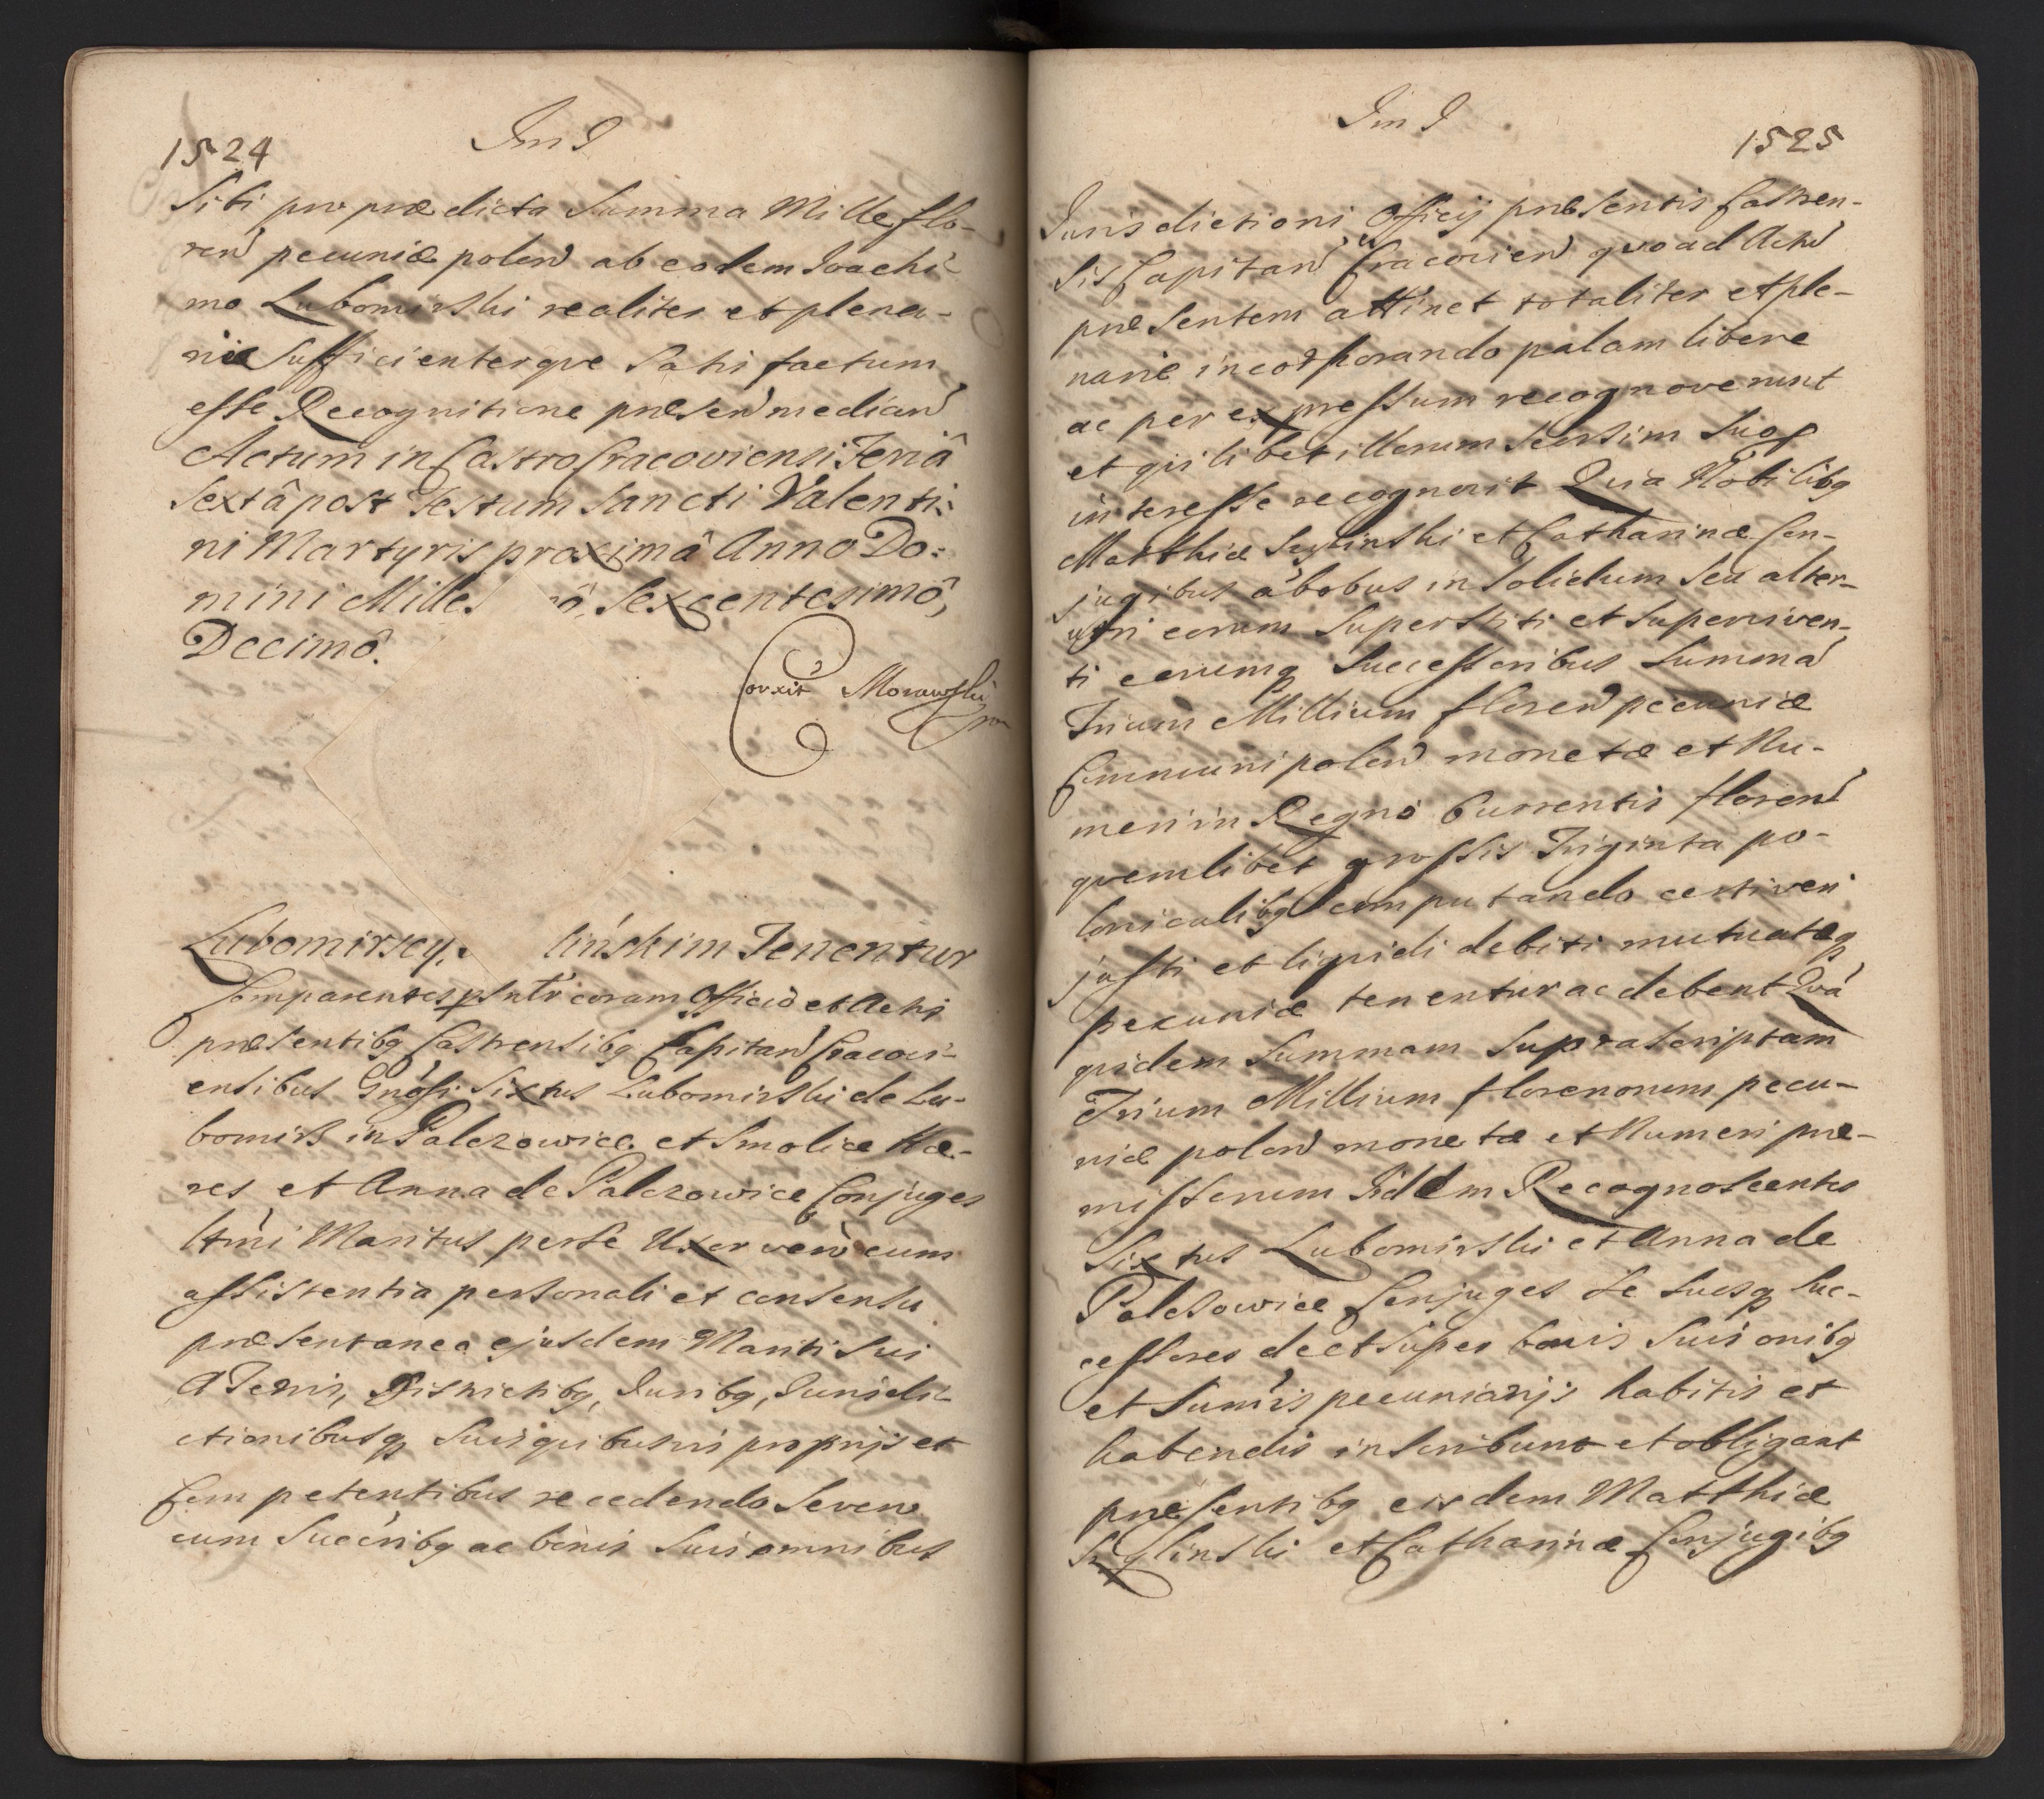 1524
Sibi pro prædicta Summa Mille flo-
ren pecuniæ polon ab eodem Joachi-
mo Lubomirski realiter et plena-
rie Sufficienterqve Satisfactum
esse Recognitione præsen median
Actum in Castro Cracoviensi Feriâ
Sextâ post Festum Sancti Valenti:
ni Martyris proximâ Anno Do:
mini Milles ô Sexcentesimô,
Decimô.
Corxit Morawski
Lubomirscy, lińskim Tenentur
Comparentes psntr coram Officio et Actis
præsentibg Castrensibg Capitan Cracovi-
ensibus Gnosi Sixtus Lubomirski de Lu-
bomirz in Palczowice et Smolice Hæ-
res et Anna de Palczowice Conjuges
ltmi Maritus per se Uxor vero cum
assistentia personali et consensu
præsentaneo ejusdem Mariti Sui
A Terris, Districtibg, Juribg, Jurisdi-
ctionibusq Suis quibusvis proprijs et
Competentibus recedendo Seve
cum Succribg ac bonis Suis omnibus
1525
Jurisdictioni Officij præsentis Castren-
sis Capitan Cracovien qvoad Actu
præsentem attinet totaliter et ple-
narie incorporando palam libere
ac per expressum recognoverunt
et qvilibet illorum Seorsim Suo
interesse recognovit Qvia Nobilibg
Matthiæ et Catharinæ Con-
jugibus abobus in Solidum Seu alter-
utri eorum Superstiti et Superviven-
ti eorumq Successoribus Summa
Trium Millium floren pecuniæ
Communi polon monetæ et Nu-
meri in Regno Currentis floren
qvemlibet grossis Triginta po-
lonicalibg computando certi veri
justi et liqvidi debiti mutuatæq
pecuniæ tenentur ac debent Qvá
qvidem Summam Suprascriptam
Trium Millium florenorum pecu-
niæ polon monetæ et Numeri præ-
missorum Iidem Recognoscentes
Sixtus Lubomirski et Anna de
Palczowice Conjuges Se Suosq Suc-
cessores de et Super bonis Suis onibg
et Sumis pecuniarijs habitis et
habendis inscribunt et obligant
præsentibg eisdem Matthiæ
et Catharinæ Conjugibg